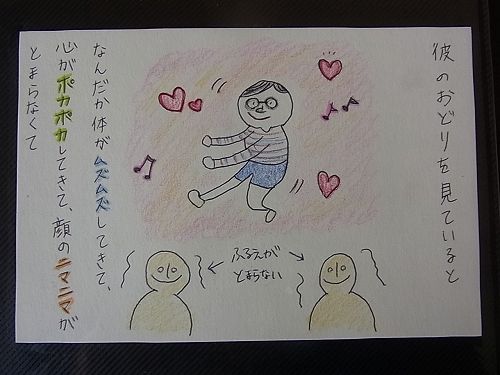 彼のおどりを見ていると
ふるえが
とまらない
なんだか体がムズムズしてきて、
心がポカポカしてきて、顔のニマニマが
とまらなくて